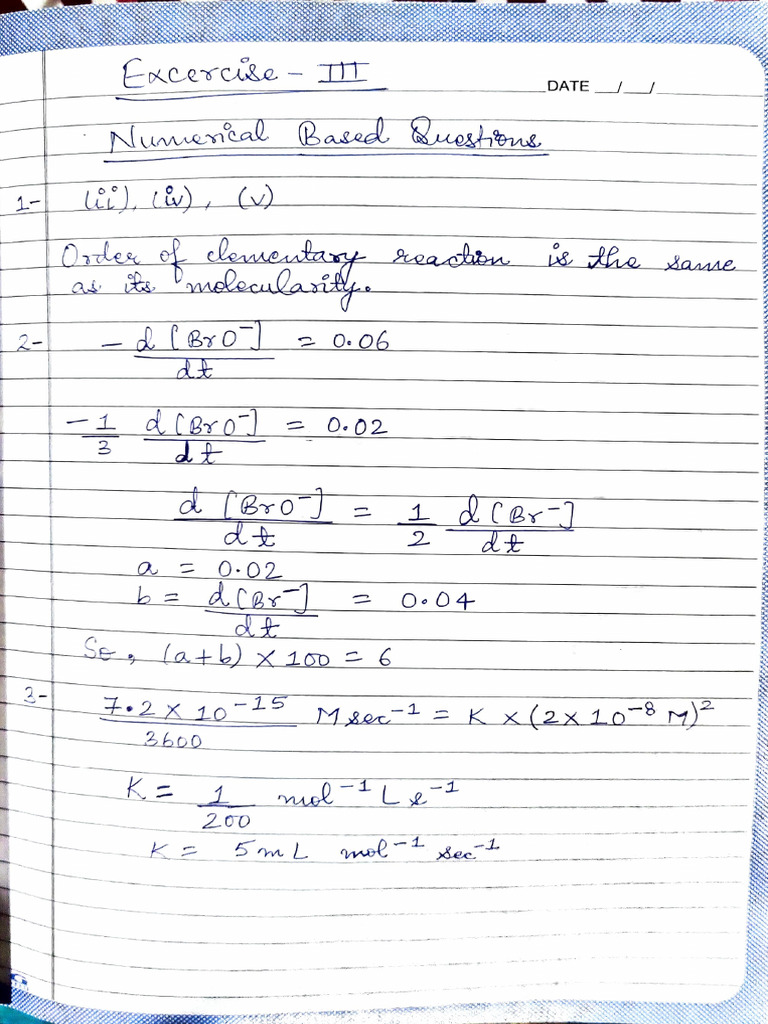 Excercise - III
DATE __/__/__
Numerical Based Questions
1- (ii), (iv), (v)
Order of elementary reaction is the same
as its molecularity.
2- - d[BrO⁻]/dt = 0.06
-1/3 d[BrO⁻]/dt = 0.02
d[BrO⁻]/dt = 1/2 d[Br⁻]/dt
a = 0.02
b = d[Br⁻]/dt = 0.04
So, (a+b) × 100 = 6
3- 7.2 × 10⁻¹⁵/3600 M sec⁻¹ = K × (2 × 10⁻⁸ M)²
K = 1/200 mol⁻¹ L s⁻¹
K = 5 mL mol⁻¹ sec⁻¹